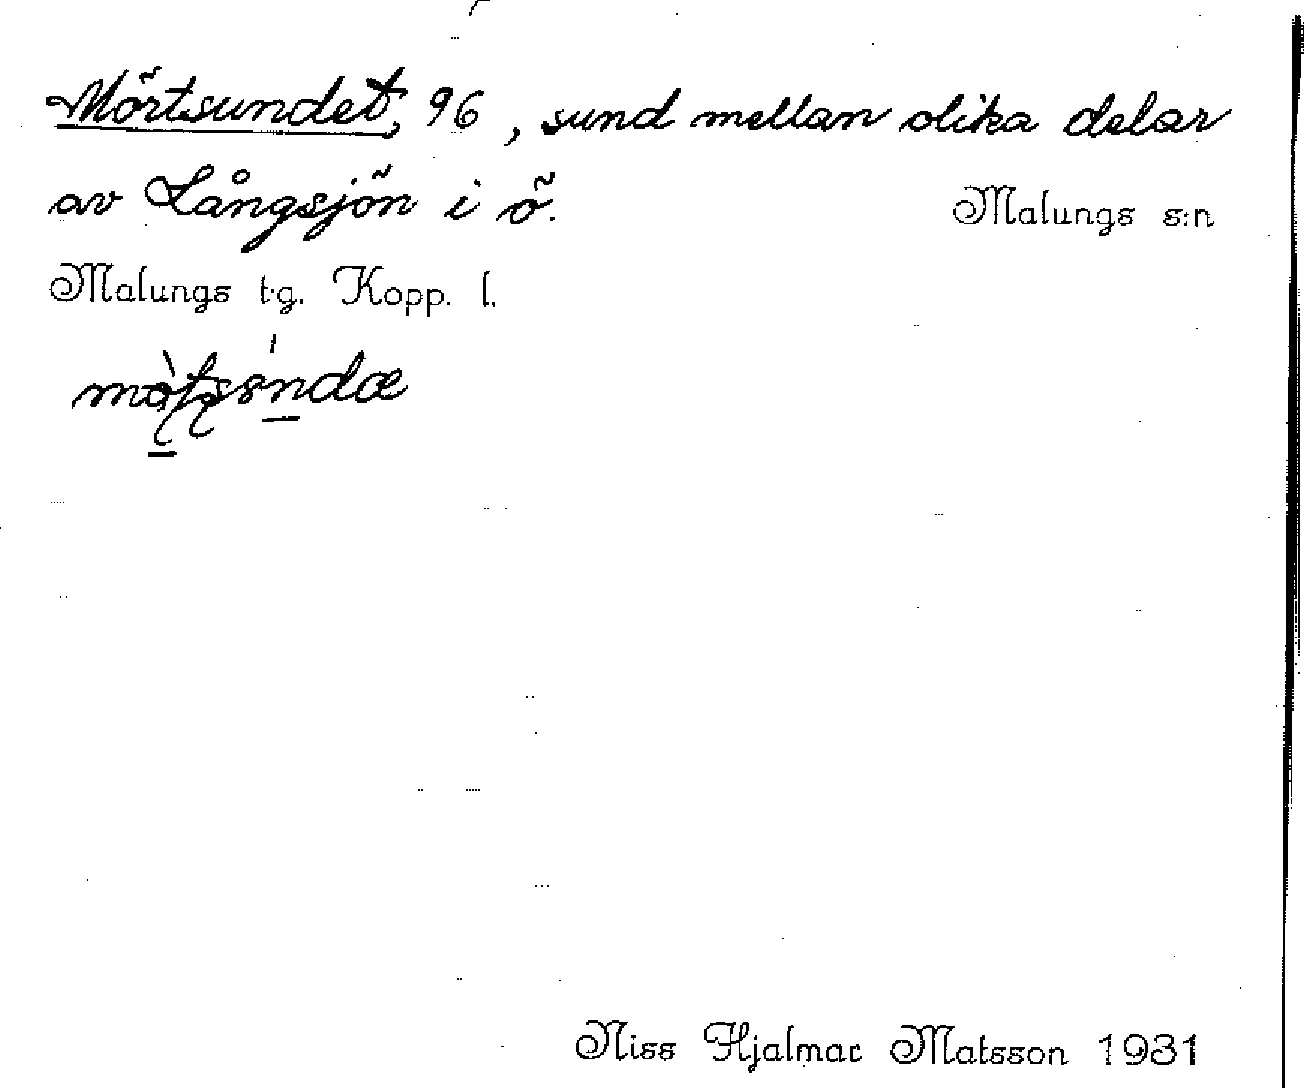 Mörtsundet, 96, sund mellan olika delar
av Långsjön i ö.
Malungs s:n
Malungs t.g. Kopp. l.
Niss Hjalmar Matsson 1931